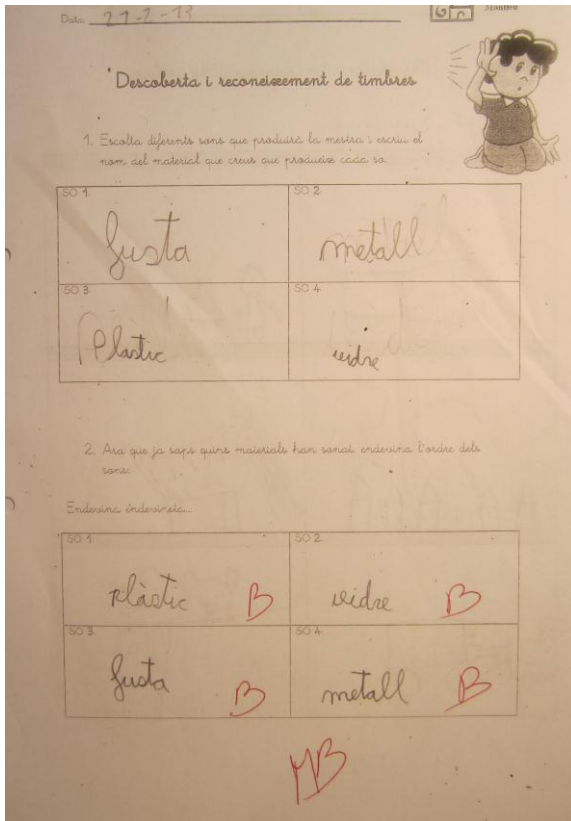 Data: 21-2-13
Descoberta i reconeixement de timbres
1. Escolta diferents sons que produirà la mestra i escriu el
nom del material que creus que produeix cada so.
SO 1. SO 2
fusta metall
SO 3. SO 4.
Plastic vidre
2. Ara que ja saps quins materials han sonat endevina l'ordre dels
sons.
Endevina endevineta...
SO 1. SO 2.
plàstic B vidre B
SO 3. SO 4.
fusta B metall B
MB